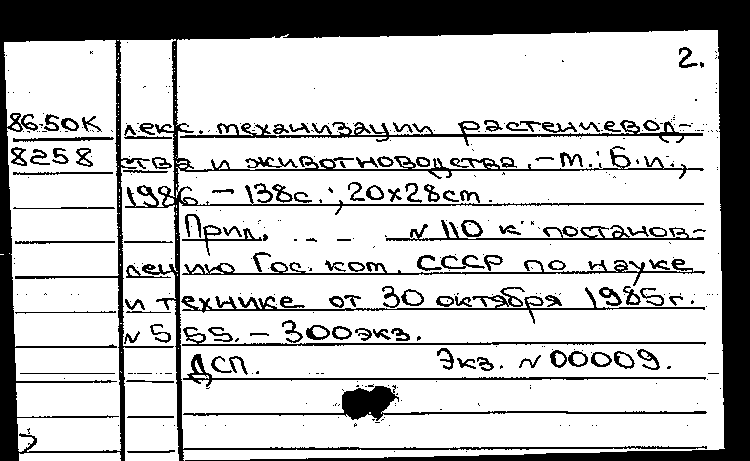 2.
86.50К лекс. механизации растениевод-
8258 ства и животноводства. - М.: Б.и.,
1986. - 138с.; 20х28cm.
Прил. N 110 к постанов-
лению Гос. ком. СССР по науке
и технике от 30 октября 1985г.
N 555. - 300экз.
ДСП. Экз. N 00009.